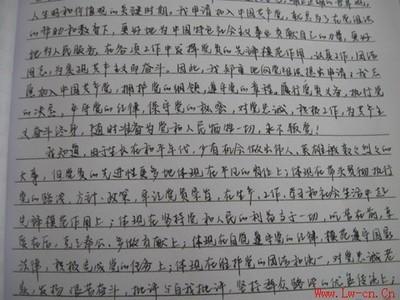 人生观和价值观的关键时期,我申请加入中国共产党,就是为了在党组织
的帮助和教育下,更好地为中国特色社会主义事业贡献自己的力量,更好
地为人民服务,在各项工作中发挥党员的先锋模范作用,认真工作,团结
同志,为实现共产主义而奋斗。因此,我郑重地向党组织提出申请:我志
愿加入中国共产党,拥护党的纲领,遵守党的章程,履行党员义务,执行党
的决定,严守党的纪律,保守党的秘密,对党忠诚,积极工作,为共产主
义奋斗终身,随时准备为党和人民牺牲一切,永不叛党!
我知道,由于生长在和平年代,少有机会做出惊人、英雄般轰轰烈烈的
大事,但党员的先进性更多地体现在平凡的岗位上:体现在带头贯彻执行
党的路线、方针、政策,牢记党员宗旨,在生产、工作、学习和社会生活中起
先锋模范作用上;体现在坚持党和人民的利益高于一切,吃苦在前,享
受在后,克己奉公,多做贡献上;体现在自觉遵守党的纪律,模范遵守国家
法律,积极完成党的任务上;体现在维护党的团结和统一,对党忠诚老
实,发扬 艰苦奋斗,批评与自我批评,坚持群众路线的优良传统上;
www.Lw-cn.Cn